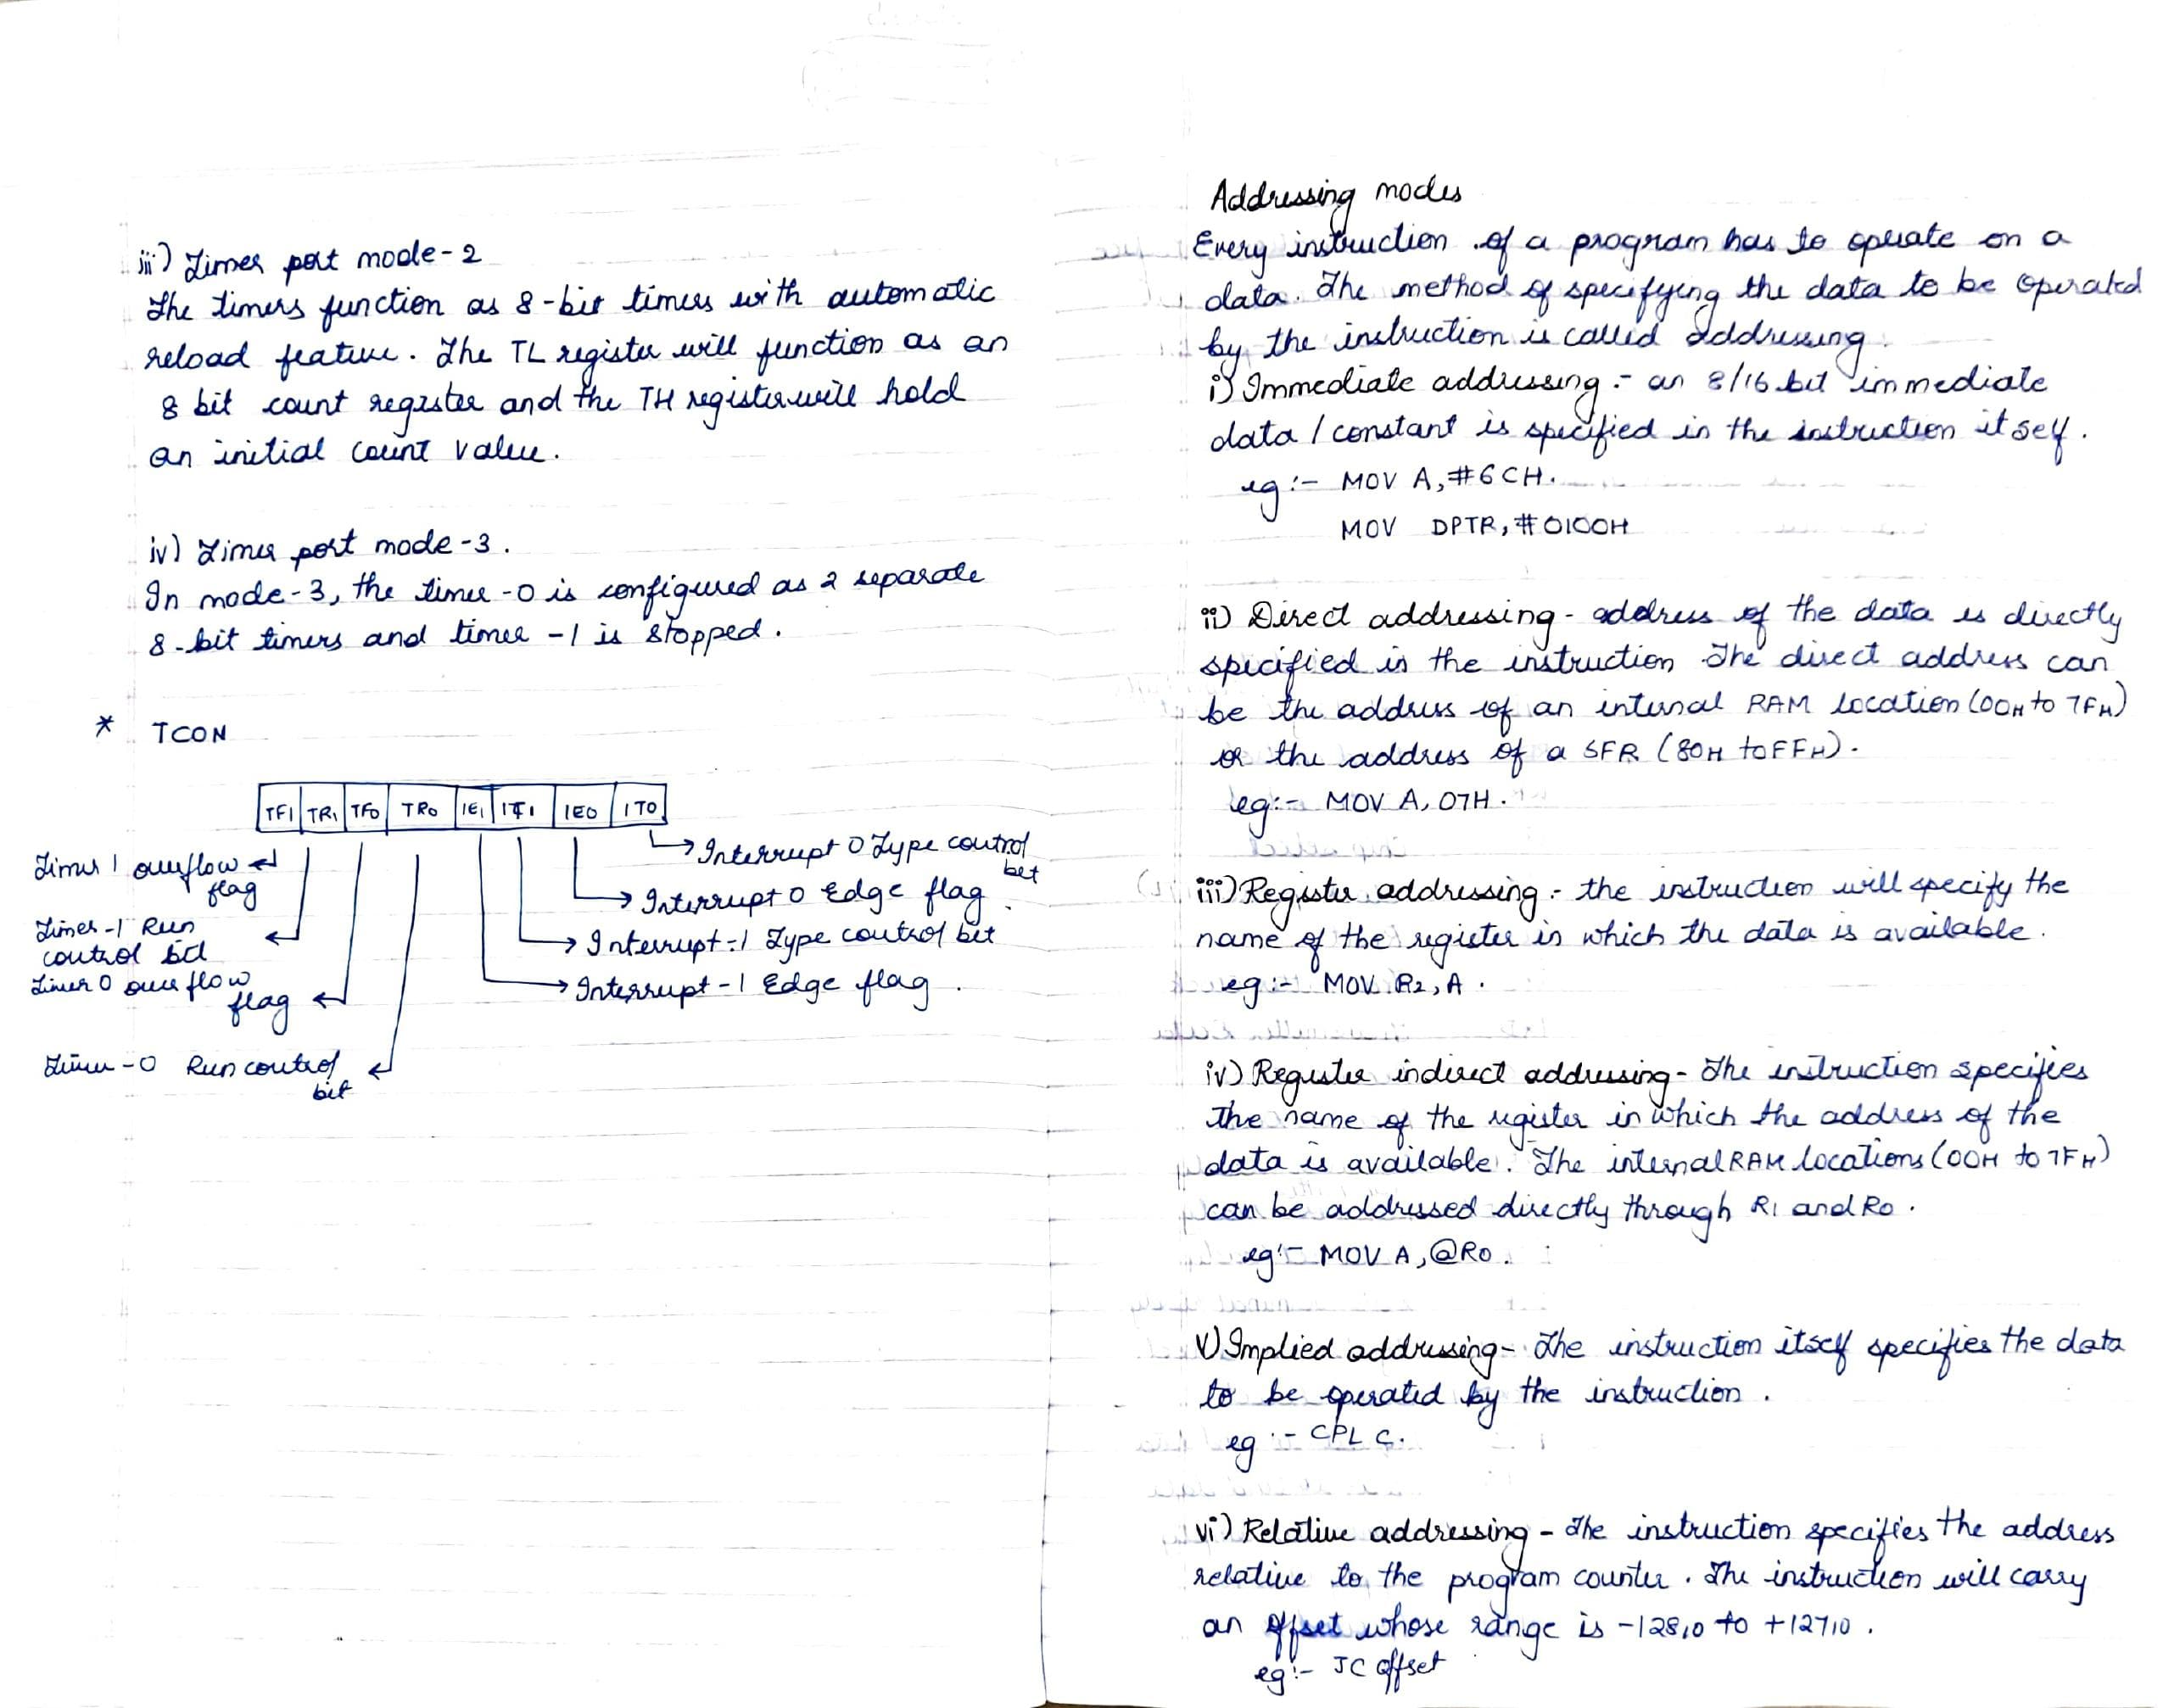 iii) Timer port mode-2
The timers function as 8-bit timers with automatic
reload feature. The TL register will function as an
8 bit count register and the TH register will hold
an initial count value.
iv) Timer port mode-3.
In mode-3, the timer-0 is configured as 2 separate
8-bit timers and timer-1 is stopped.
* TCON
TF1 TR1 TF0 TR0 IE1 IT1 IE0 IT0
Interrupt 0 Type control
bit
Interrupt 0 Edge flag
Interrupt-1 Type control bit
Interrupt-1 Edge flag.
Timer 1 overflow
flag
Timer-1 Run
control bit
Timer 0 over flow
flag
Timer-0 Run control
bit
Addressing modes
Every instruction of a program has to operate on a
data. The method of specifying the data to be operated
by the instruction is called addressing.
i) Immediate addressing :- an 8/16 bit immediate
data / constant is specified in the instruction it self.
eg :- MOV A, #6CH.
MOV DPTR, #0100H
ii) Direct addressing - address of the data is directly
specified in the instruction The direct address can
be the address of an internal RAM location (00H to 7FH)
or the address of a SFR (80H to FFH).
eg:- MOV A, 07H.
iii) Register addressing :- the instruction will specify the
name of the register in which the data is available.
eg :- MOV R2, A.
iv) Register indirect addressing - The instruction specifies
the name of the register in which the address of the
data is available. The internal RAM locations (00H to 7FH)
can be addressed directly through R1 and R0.
eg:- MOV A, @R0.
v) Implied addressing - The instruction itself specifies the data
to be operated by the instruction.
eg :- CPL C.
vi) Relative addressing - The instruction specifies the address
relative to the program counter. The instruction will carry
an offset whose range is -128₁₀ to +127₁₀.
eg:- JC offset